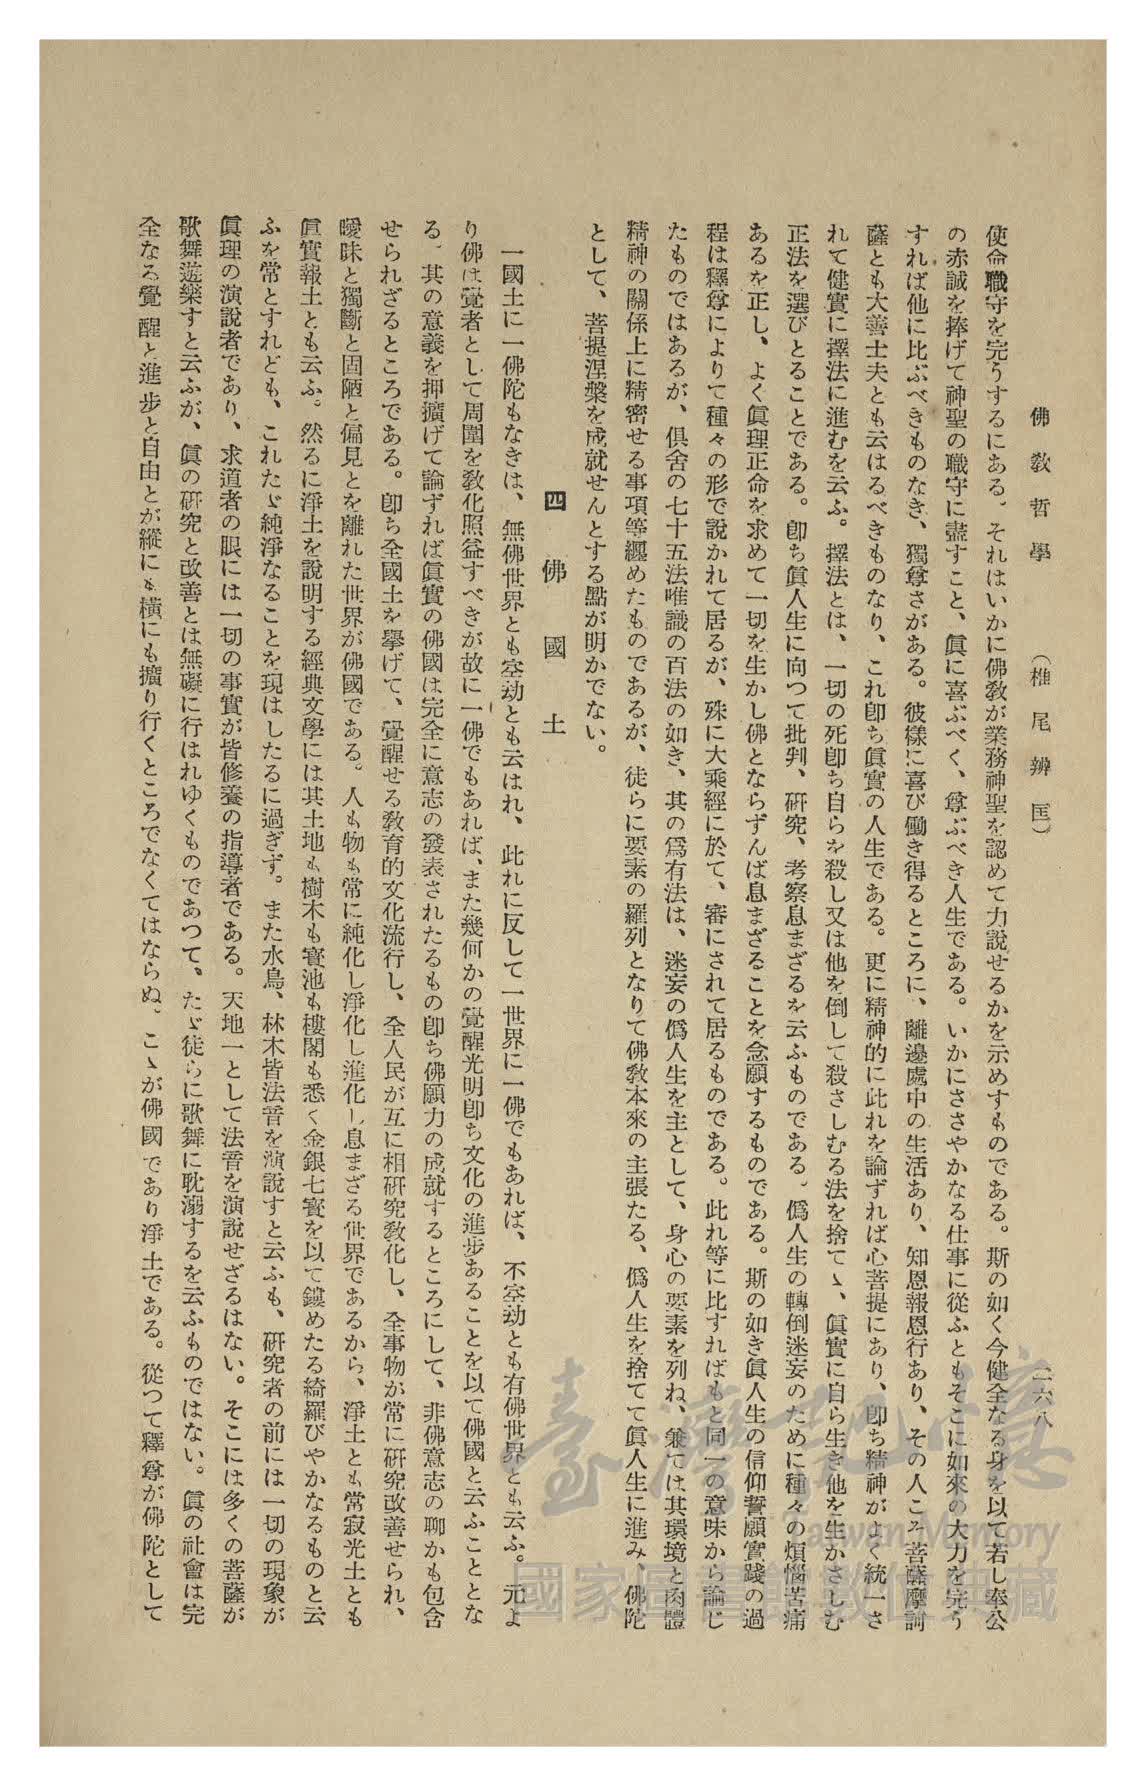 佛敎哲學　（椎尾辨匡）　二六八
使命職守を完うするにある。それはいかに佛敎が業務神聖を認めて力說せるかを示めすものである。斯の如く今健全なる身を以て若し奉公
の赤誠を捧げて神聖の職守に盡すこと、眞に喜ぶべく、尊ぶべき人生である。いかにささやかなる仕事に從ふともそこに如來の大力を完う
すれば他に比ぶべきものなき、獨尊さがある。彼樣に喜び働き得るところに、離邊處中の生活あり、知恩報恩行あり、その人こそ菩薩摩訶
薩とも大善士夫とも云はるべきものなり、これ卽ち眞實の人生である。更に精神的に此れを論ずれば心菩提にあり、卽ち精神がよく統一さ
れて健實に擇法に進むを云ふ。擇法とは、一切の死卽ち自らを殺し又は他を倒して殺さしむる法を捨てゝ、眞實に自ら生き他を生かさしむ
正法を選びとることである。卽ち眞人生に向つて批判、硏究、考察息まざるを云ふものである。僞人生の轉倒迷妄のために種々の煩惱苦痛
あるを正し、よく眞理正命を求めて一切を生かし佛とならずんば息まざることを念願するものである。斯の如き眞人生の信仰誓願實踐の過
程は釋尊によりて種々の形で說かれて居るが、殊に大乘經に於て、審にされて居るものである。此れ等に比すればもと同一の意味から論じ
たものではあるが、俱舍の七十五法唯識の百法の如き、其の爲有法は、迷妄の僞人生を主として、身心の要素を列ね、兼ては其環境と肉體
精神の關係上に精密せる事項等纒めたものであるが、徒らに要素の羅列となりて佛敎本來の主張たる、僞人生を捨てて眞人生に進み、佛陀
として、菩提涅槃を成就せんとする點が明かでない。
四　佛國土
一國土に一佛陀もなきは、無佛世界とも空劫とも云はれ、此れに反して一世界に一佛でもあれば、不空劫とも有佛世界とも云ふ。元よ
り佛は覺者として周圍を敎化照益すべきが故に一佛でもあれば、また幾何かの覺醒光明卽ち文化の進步あることを以て佛國と云ふこととな
る。其の意義を押擴げて論ずれば眞實の佛國は完全に意志の發表されたるもの卽ち佛願力の成就するところにして、非佛意志の聊かも包含
せられざるところである。卽ち全國土を擧げて、覺醒せる敎育的文化流行し、全人民が互に相硏究敎化し、全事物が常に硏究改善せられ、
曖昧と獨斷と固陋と偏見とを離れた世界が佛國である。人も物も常に純化し淨化し進化し息まざる世界であるから、淨土とも常寂光土とも
眞實報土とも云ふ。然るに淨土を說明する經典文學には其土地も樹木も寳池も樓閣も悉く金銀七寳を以て鏤めたる綺羅びやかなるものと云
ふを常とすれども、これたゞ純淨なることを現はしたるに過ぎず。また水鳥、林木皆法音を演說すと云ふも、硏究者の前には一切の現象が
眞理の演說者であり、求道者の眼には一切の事實が皆修養の指導者である。天地一として法音を演說せざるはない。そこには多くの菩薩が
歌舞遊樂すと云ふが、眞の硏究と改善とは無礙に行はれゆくものであつて、たゞ徒らに歌舞に耽溺するを云ふものではない。眞の社會は完
全なる覺醒と進步と自由とが縱にも橫にも擴り行くところでなくてはならぬ。こゝが佛國であり淨土である。從つて釋尊が佛陀として
臺灣記憶
Taiwan Memory
國家圖書館數位典藏